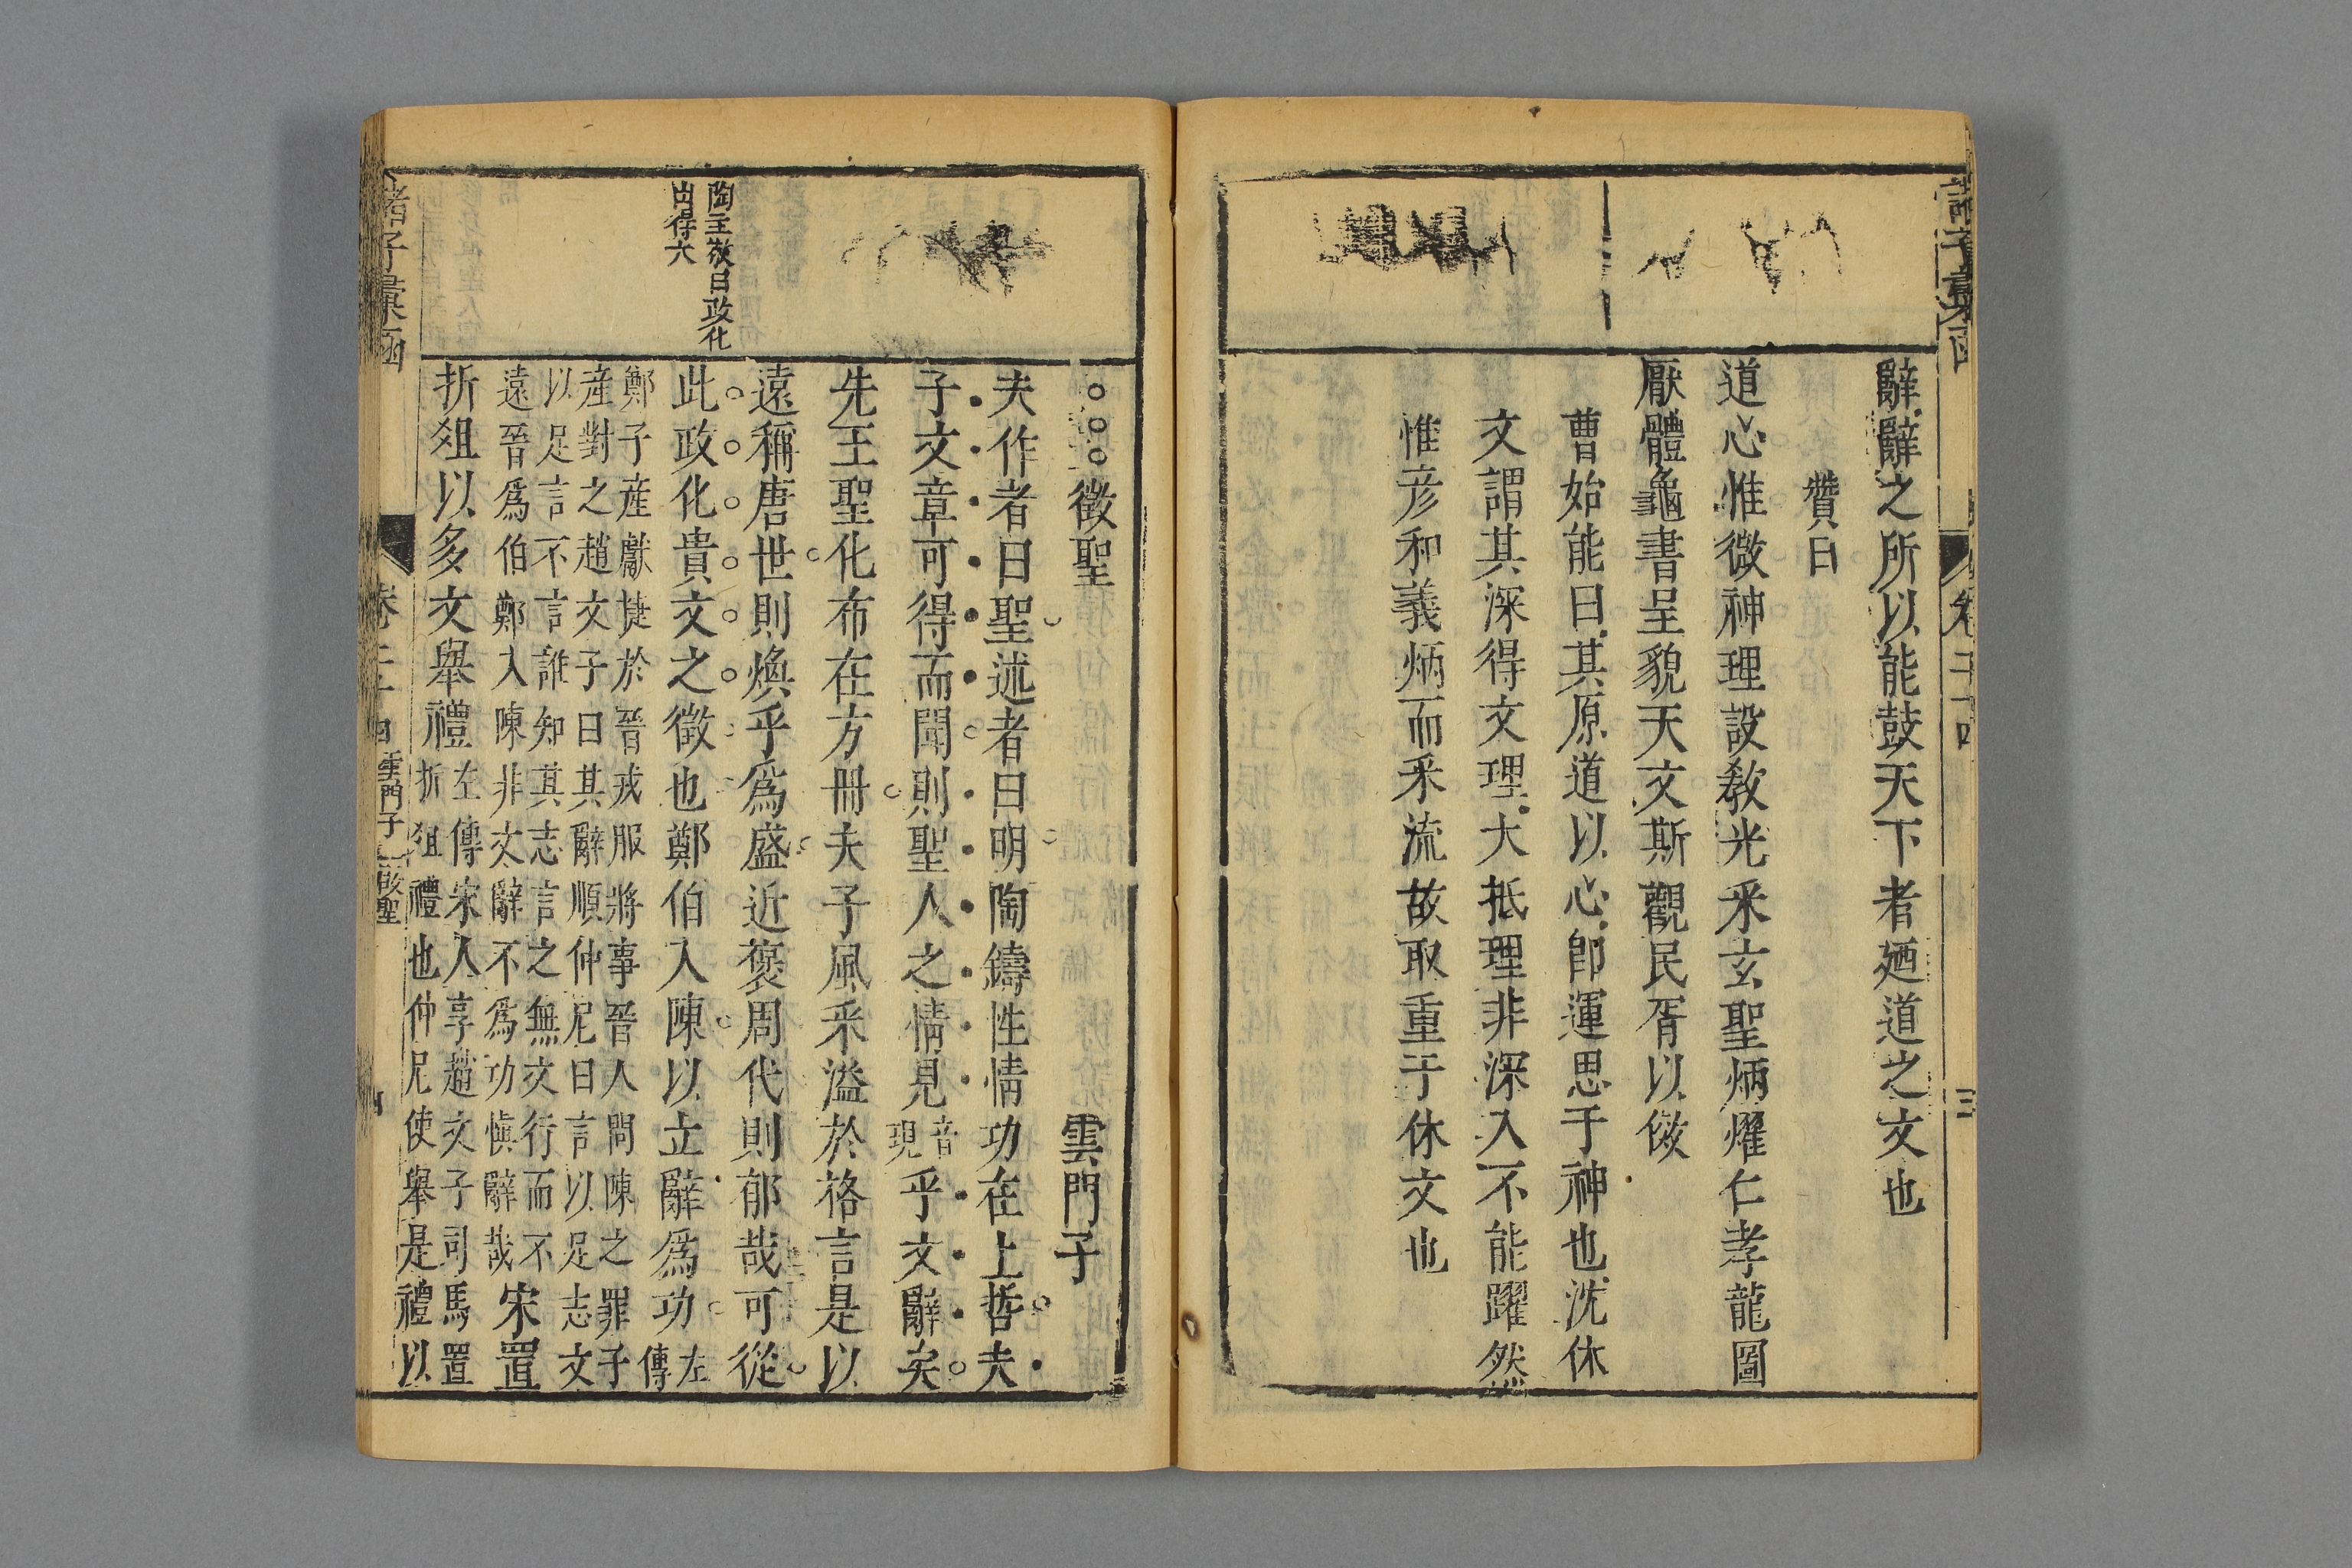 諸子彙函
卷二十四
三
辭辭之所以能鼓天下者廼道之文也
贊曰
道心惟微神理設教光采玄聖炳燿仁孝龍圖
厭體龜書呈貌天文斯觀民胥以傚
曹始能曰其原道以心卽運思于神也沈休
文謂其深得文理大抵理非深入不能躍然
惟彦和義炳而采流故取重于休文也
徵聖
雲門子
夫作者曰聖述者曰明陶鑄性情功在上哲夫
子文章可得而聞則聖人之情見音現乎文辭矣
先王聖化布在方冊夫子風采溢於格言是以
遠稱唐世則煥乎爲盛近褒周代則郁哉可從
陶主敬曰政化
出得大
此政化貴文之徵也鄭伯入陳以立辭爲功左傳
鄭子產獻捷於晉戎服將事晉人問陳之罪子
產對之趙文子曰其辭順仲尼曰言以足志文
以足言不言誰知其志言之無文行而不
遠晉爲伯鄭入陳非文辭不爲功愼辭哉宋置
折俎以多文舉禮左傳宋人享趙文子司馬置
折俎禮也仲尼使舉是禮以
諸子彙函
卷二十四
雲門子
徵聖